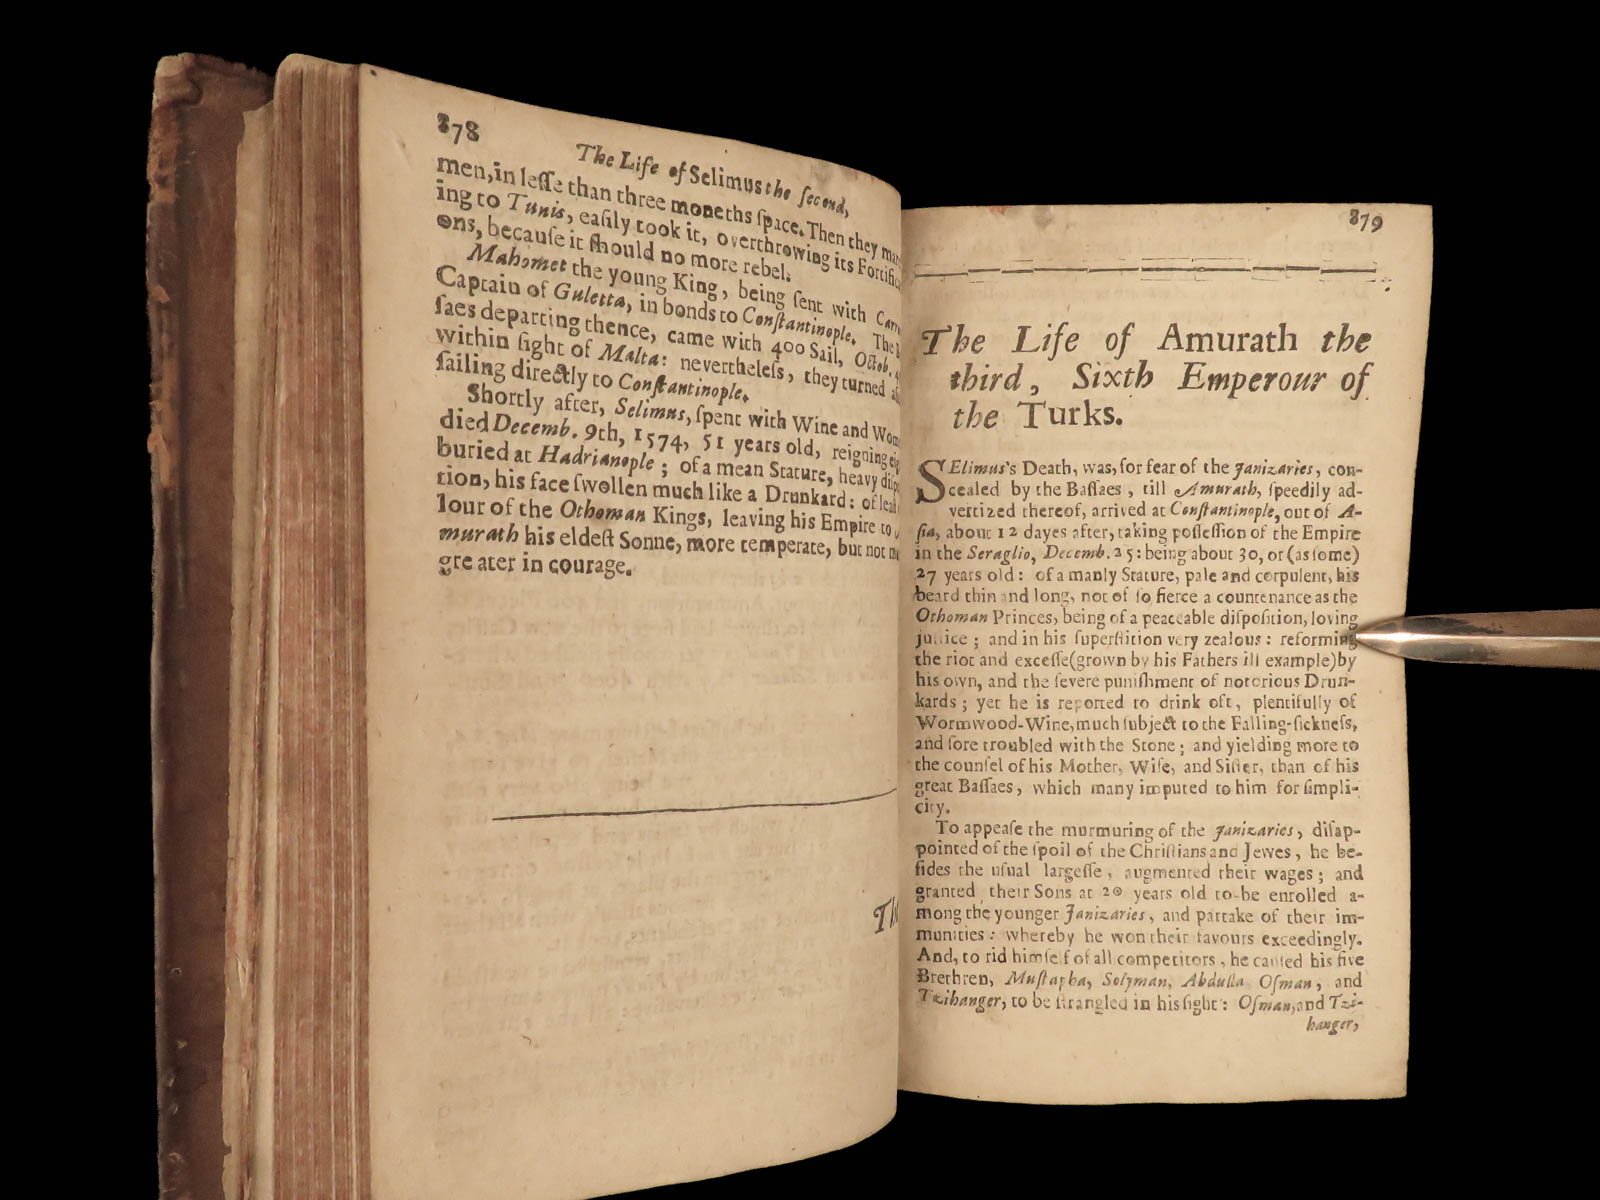 378
The Life of Selimus the ſecond,
men, in leſſe than three moneths ſpace. Then they
ing to Tunis, eaſily took it, overthrowing its
ons, becauſe it ſhould no more rebel.
Mahomet the young King, being ſent with
Captain of Guletta, in bonds to Conſtantinople.
ſaes departing thence, came with 400 Sail, Octob.
within ſight of Malta: nevertheleſs, they turned
ſailing directly to Conſtantinople.
Shortly after, Selimus, ſpent with Wine and
died Decemb. 9th, 1574, 51 years old, reigning
buried at Hadrianople; of a mean Stature, heavy
tion, his face ſwollen much like a Drunkard: of
lour of the Othoman Kings, leaving his Empire to
murath his eldeſt Sonne, more temperate, but not
gre ater in courage.
379
The Life of Amurath the
third, Sixth Emperour of
the Turks.
SElimus's Death, was, for fear of the Janizaries, con-
cealed by the Baſſaes, till Amurath, ſpeedily ad-
vertized thereof, arrived at Conſtantinople, out of A-
ſia, about 12 dayes after, taking poſſeſſion of the Empire
in the Seraglio, Decemb. 25: being about 30, or (as ſome)
27 years old: of a manly Stature, pale and corpulent, his
beard thin and long, not of ſo fierce a countenance as the
Othoman Princes, being of a peaceable diſpoſition, loving
juſtice; and in his ſuperſtition very zealous: reforming
the riot and exceſſe (grown by his Fathers ill example) by
his own, and the ſevere puniſhment of notorious Drun-
kards; yet he is reported to drink oft, plentifully of
Wormwood-Wine, much ſubject to the Falling-ſickneſs,
and ſore troubled with the Stone; and yielding more to
the counſel of his Mother, Wife, and Siſter, than of his
great Baſſaes, which many imputed to him for ſimpli-
city.
To appeaſe the murmuring of the Janizaries, diſap-
pointed of the ſpoil of the Chriſtians and Jewes, he be-
ſides the uſual largeſſe, augmented their wages; and
granted their Sons at 20 years old to be enrolled a-
mong the younger Janizaries, and partake of their im-
munities: whereby he won their favours exceedingly.
And, to rid himſelf of all competitors, he cauſed his five
Brethren, Muſtapha, Solyman, Abdulla Oſman, and
Tzihanger, to be ſtrangled in his ſight: Oſman, and Tzi-
hanger,